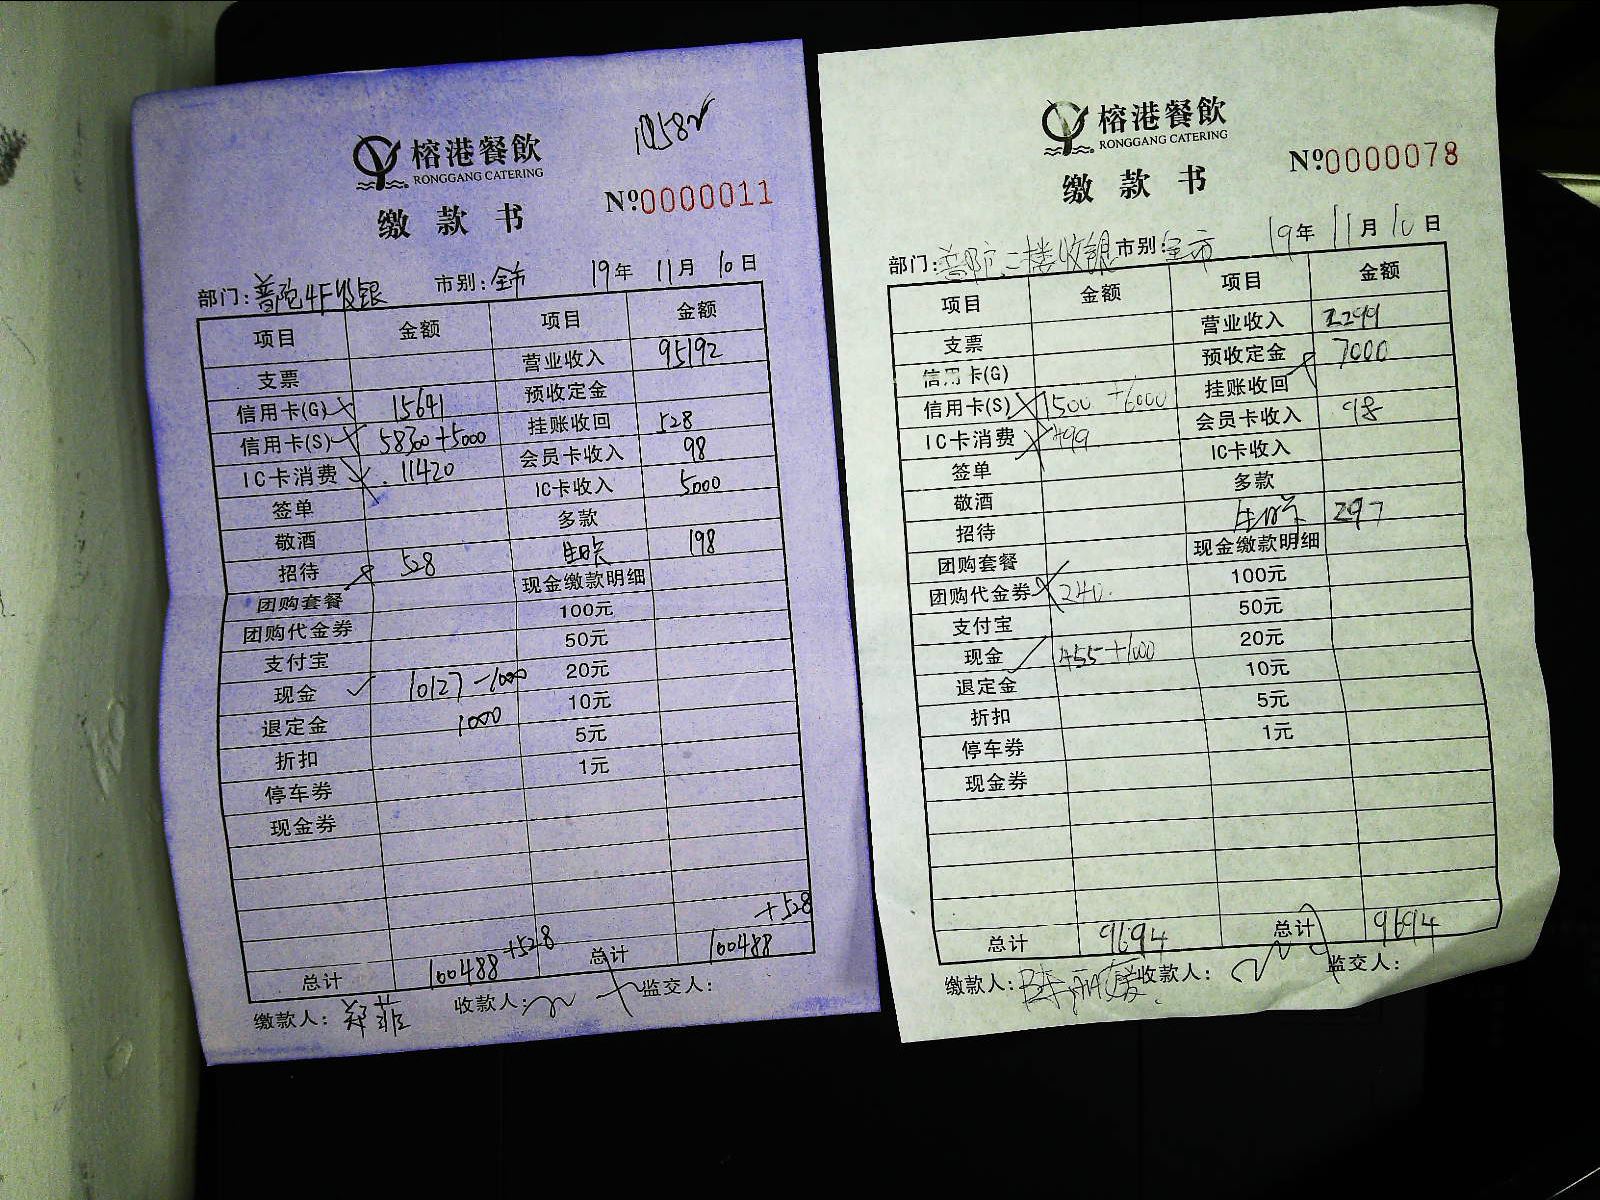 榕港餐飲
RONGGANG CATERING
10582
缴款书
Nº0000011
部门:普陀4F收银 市别:全市 19年 11月 10日
项目 金额 项目 金额
支票 营业收入 95192
信用卡(G) 15641 预收定金
信用卡(S) 58300+5000 挂账收回 528
IC卡消费 11420 会员卡收入 98
签单 IC卡收入 5000
敬酒 多款
招待 528 198
团购套餐 现金缴款明细
团购代金券 100元
支付宝 50元
现金 10127-1000 20元
退定金 1000 10元
折扣 5元
停车券 1元
现金券
总计 100488+528 总计 100488+528
缴款人:郑菲 收款人: 监交人:
榕港餐飲
RONGGANG CATERING
缴款书
Nº0000078
部门:普陀二楼收银 市别:全市 19年 11月 10日
项目 金额 项目 金额
支票 营业收入 2299
信用卡(G) 预收定金 7000
信用卡(S) 1500+6000 挂账收回
IC卡消费 499 会员卡收入 98
签单 IC卡收入
敬酒 多款
招待 297
团购套餐 现金缴款明细
团购代金券 240 100元
支付宝 50元
现金 455+1000 20元
退定金 10元
折扣 5元
停车券 1元
现金券
总计 9694 总计 9694
缴款人: 收款人: 监交人: